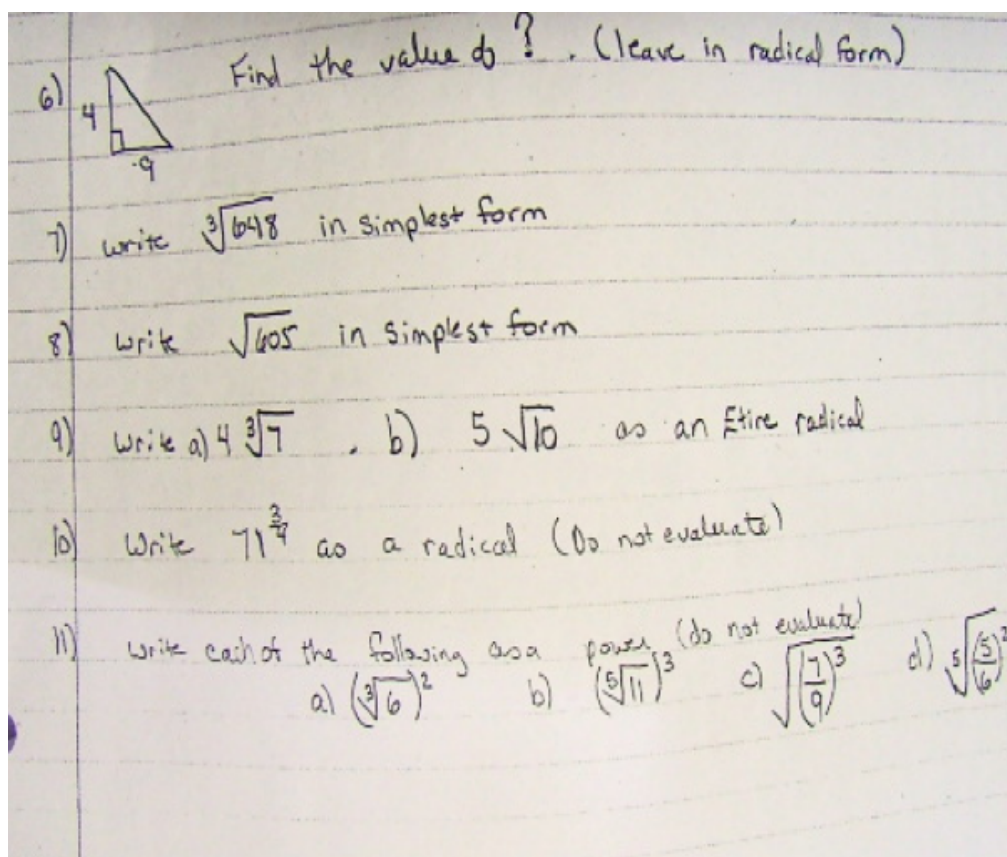 6) Find the value of ? . (leave in radical form)
4
9
7) Write ∛648 in simplest form
8) Write √605 in simplest form
9) Write a) 4 ∛7 . b) 5 √10 as an Etire radical
10) Write 71^(3/4) as a radical (Do not evaluate)
11) Write each of the following as a power (do not evaluate)
a) (∛6)² b) (⁵√11)³ c) √(7/9)³ d) ⁵√(5/6)